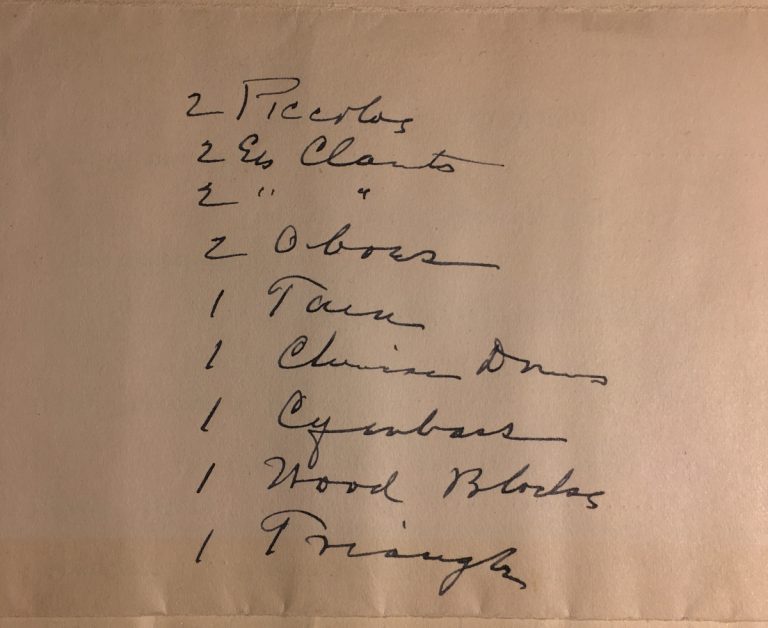 2 Piccolos
2 Eb Clarnts
2 " "
2 Oboes
1
1 Chinese Drums
1 Cymbals
1 Wood Blocks
1 Triangle